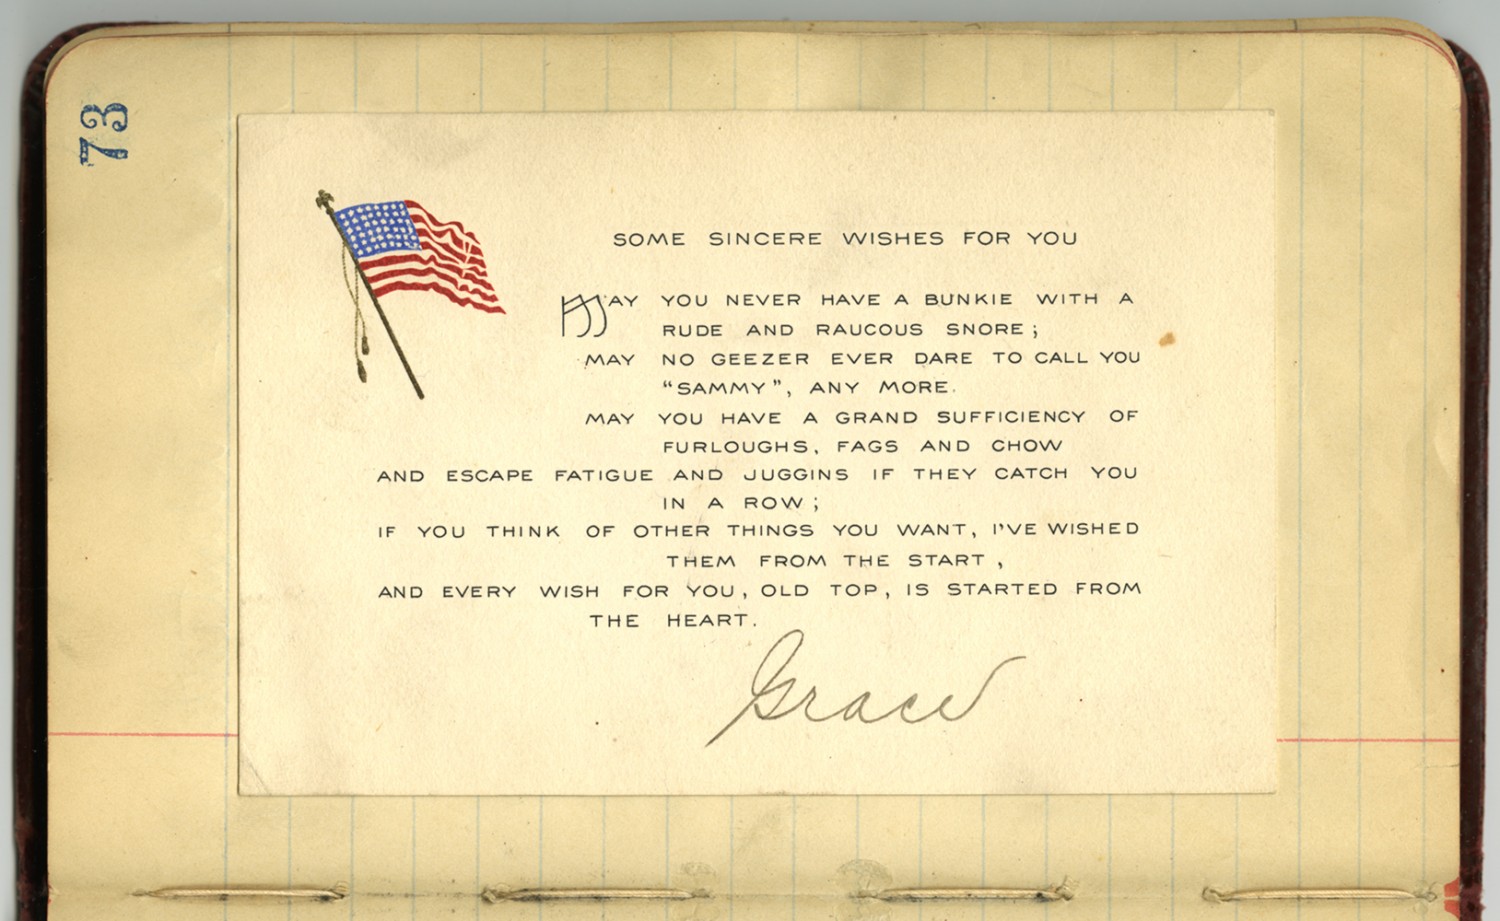 73
SOME SINCERE WISHES FOR YOU
MAY YOU NEVER HAVE A BUNKIE WITH A
RUDE AND RAUCOUS SNORE;
MAY NO GEEZER EVER DARE TO CALL YOU
"SAMMY", ANY MORE.
MAY YOU HAVE A GRAND SUFFICIENCY OF
FURLOUGHS, FAGS AND CHOW
AND ESCAPE FATIGUE AND JUGGINS IF THEY CATCH YOU
IN A ROW;
IF YOU THINK OF OTHER THINGS YOU WANT, I'VE WISHED
THEM FROM THE START,
AND EVERY WISH FOR YOU, OLD TOP, IS STARTED FROM
THE HEART.
Grace